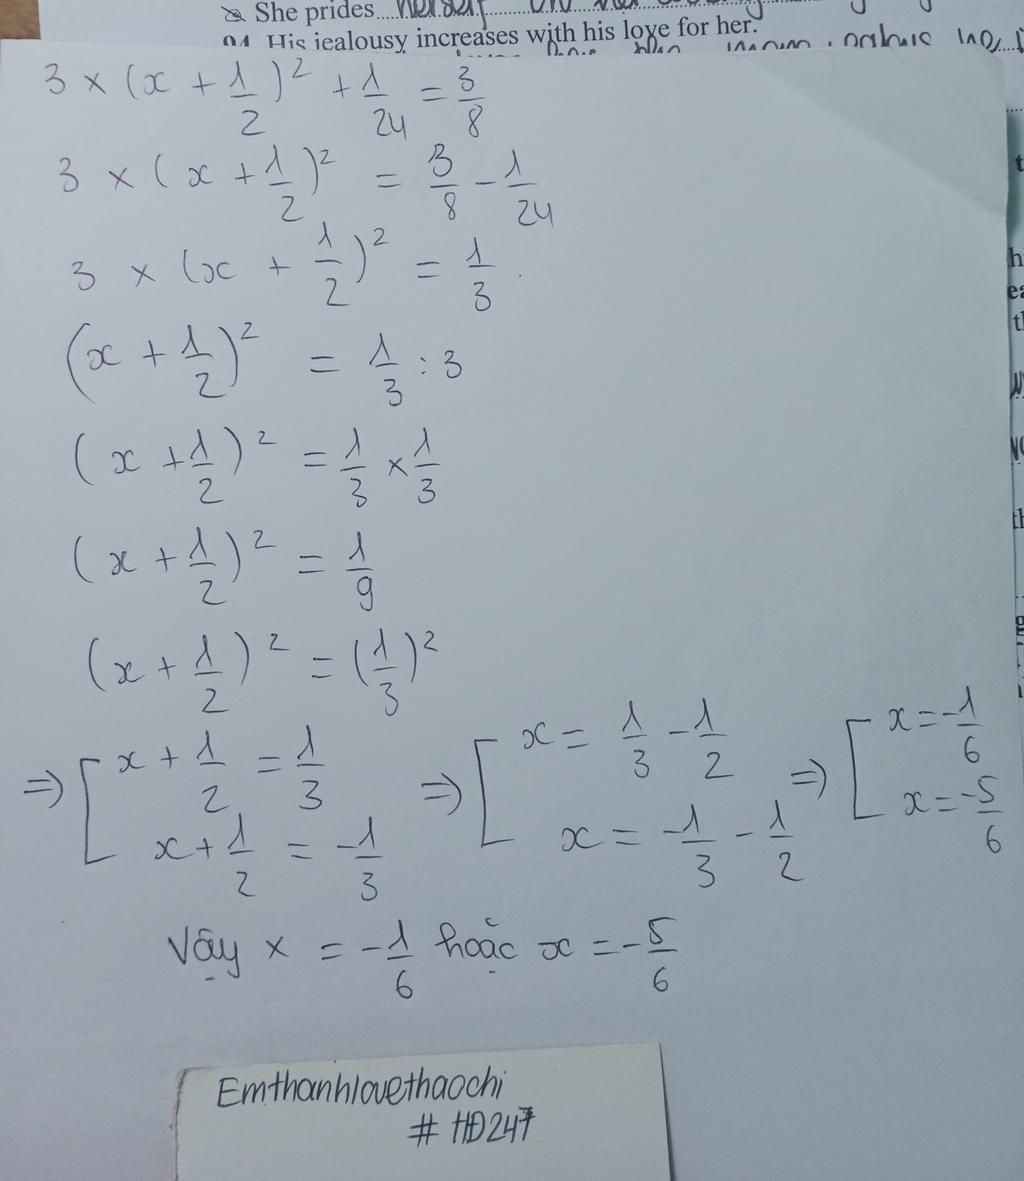 She prides....herself
04 His jealousy increases with his love for her.
3 × (x + 1/2)² + 1/24 = 3/8
3 × (x + 1/2)² = 3/8 - 1/24
3 × (x + 1/2)² = 1/3
(x + 1/2)² = 1/3 : 3
(x + 1/2)² = 1/3 × 1/3
(x + 1/2)² = 1/9
(x + 1/2)² = (1/3)²
=> [ x + 1/2 = 1/3 => [ x = 1/3 - 1/2 => [ x = -1/6
x + 1/2 = -1/3 x = -1/3 - 1/2 x = -5/6
Vậy x = -1/6 hoặc x = -5/6
Emthanhlovethaochi
# HĐ247